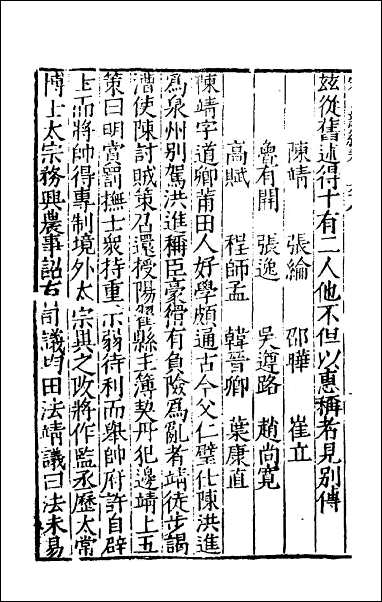 茲從舊述得十有二人他不但以惠稱者見別傳
陳靖　張綸　邵曄　崔立
魯有開　張逸　吳遵路　趙尚寬
高賦　程師孟　韓晉卿　葉康直
陳靖字道卿莆田人好學頗通古今父仁璧仕陳洪進
爲泉州別駕洪進稱臣豪猾有負險爲亂者靖徒步謁
漕使陳討賊策召還授陽翟縣主簿契丹犯邊靖上五
策曰明賞罰撫士衆持重示弱待利而舉帥府許自辟
士而將帥得專制境外太宗異之改將作監丞歷太常
博士太宗務興農事詔有司議均田法靖議曰法未易